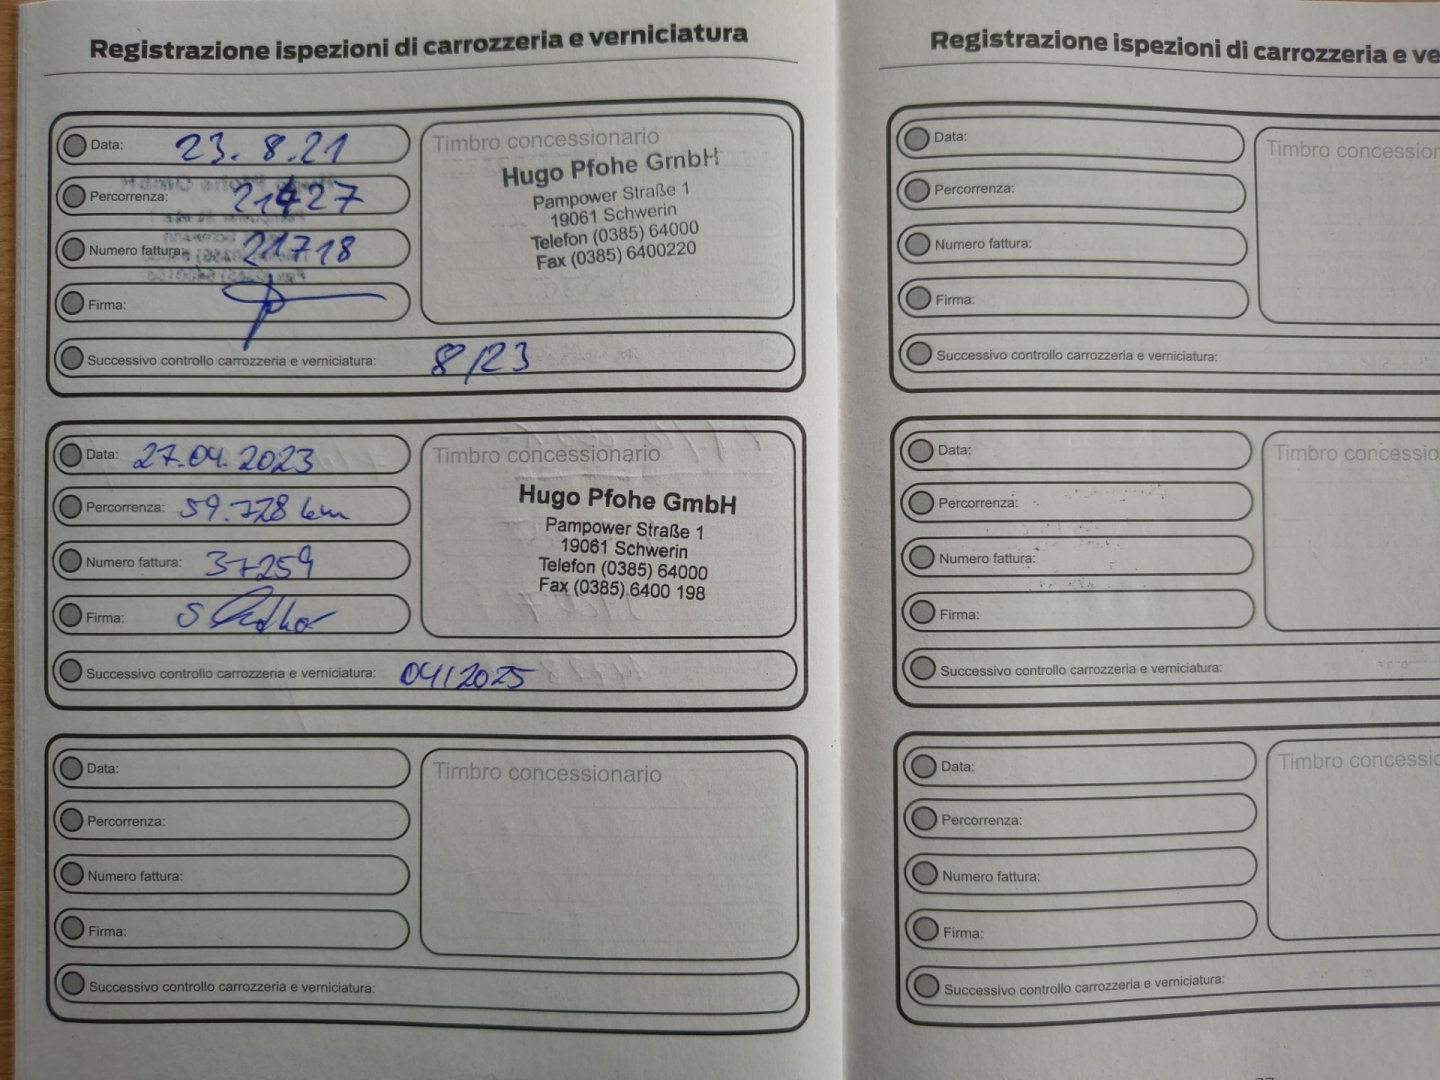 Registrazione ispezioni di carrozzeria e verniciatura
Data: 23.8.21
Percorrenza: 21427
Numero fattura: 21718
Firma:
Timbro concessionario
Hugo Pfohe GmbH
Pampower Straße 1
19061 Schwerin
Telefon (0385) 64000
Fax (0385) 6400220
Successivo controllo carrozzeria e verniciatura: 8/23
Data: 27.04.2023
Percorrenza: 59.728 km
Numero fattura: 37259
Firma:
Timbro concessionario
Hugo Pfohe GmbH
Pampower Straße 1
19061 Schwerin
Telefon (0385) 64000
Fax (0385) 6400 198
Successivo controllo carrozzeria e verniciatura: 04/2025
Data:
Percorrenza:
Numero fattura:
Firma:
Timbro concessionario
Successivo controllo carrozzeria e verniciatura:
Registrazione ispezioni di carrozzeria e ve
Data:
Percorrenza:
Numero fattura:
Firma:
Timbro concession
Successivo controllo carrozzeria e verniciatura:
Data:
Percorrenza:
Numero fattura:
Firma:
Timbro concessio
Successivo controllo carrozzeria e verniciatura:
Data:
Percorrenza:
Numero fattura:
Firma:
Timbro concessio
Successivo controllo carrozzeria e verniciatura: